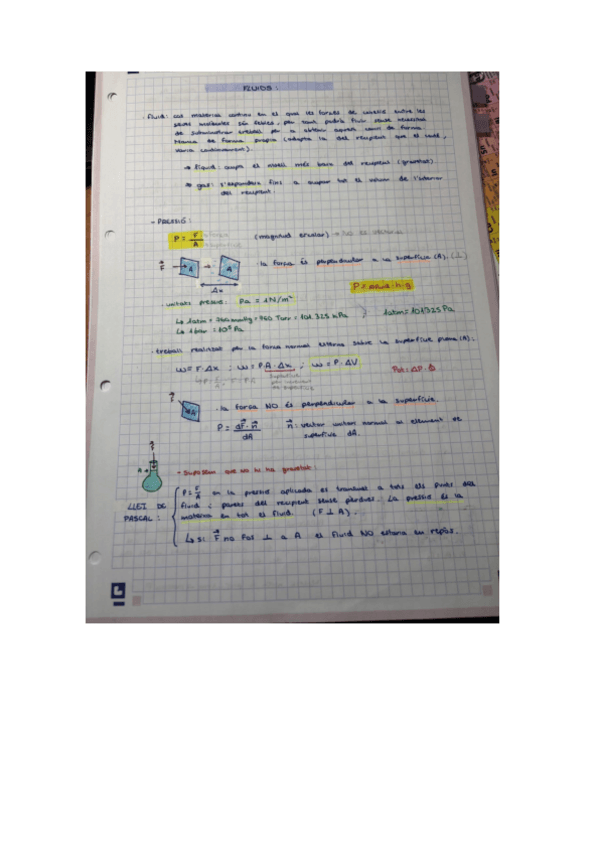 FLUIDS:
· fluid: cos material continu en el que les forces de cohesió entre les
seves molècules són febles, per tant podrà fluir sense necessitat
de subministrar treball per a obtenir aquest canvi de forma.
Manca de forma pròpia (adopta la del recipient que el conté,
varia contínuament).
→ líquid: ocupa el nivell més baix del recipient (gravetat).
→ gas: s'expandeix fins a ocupar tot el volum de l'interior
del recipient.
- PRESSIÓ:
P = F/A → força → superfície (magnitud escalar) → NO és vectorial
F → A → A · la força és perpendicular a la superfície (A). (⊥)
Δx
P = h · g
· unitats pressió: Pa = 1N/m²
↳ 1atm = 760 mmHg = 760 Torr = 101.325 kPa
↳ 1 bar = 10⁵ Pa
1atm = 101325 Pa
· treball realitzat per la força normal externa sobre la superfície plana (A):
W = F · Δx ; W = P · A · Δx ; W = P · ΔV
superfície
Pot = ΔP · Φ
F dA · la força NO és perpendicular a la superfície.
P = dF · n / dA n: vector unitari normal al element de
superfície dA.
F
A
- Suposem que no hi ha gravetat:
LLEI DE PASCAL:
P = F/A on la pressió aplicada es transmet a tots els punts del
fluid i parets del recipient sense pèrdues. La pressió és la
mateixa en tot el fluid. (F ⊥ A).
↳ si F no fos ⊥ a A el fluid NO estaria en repòs.